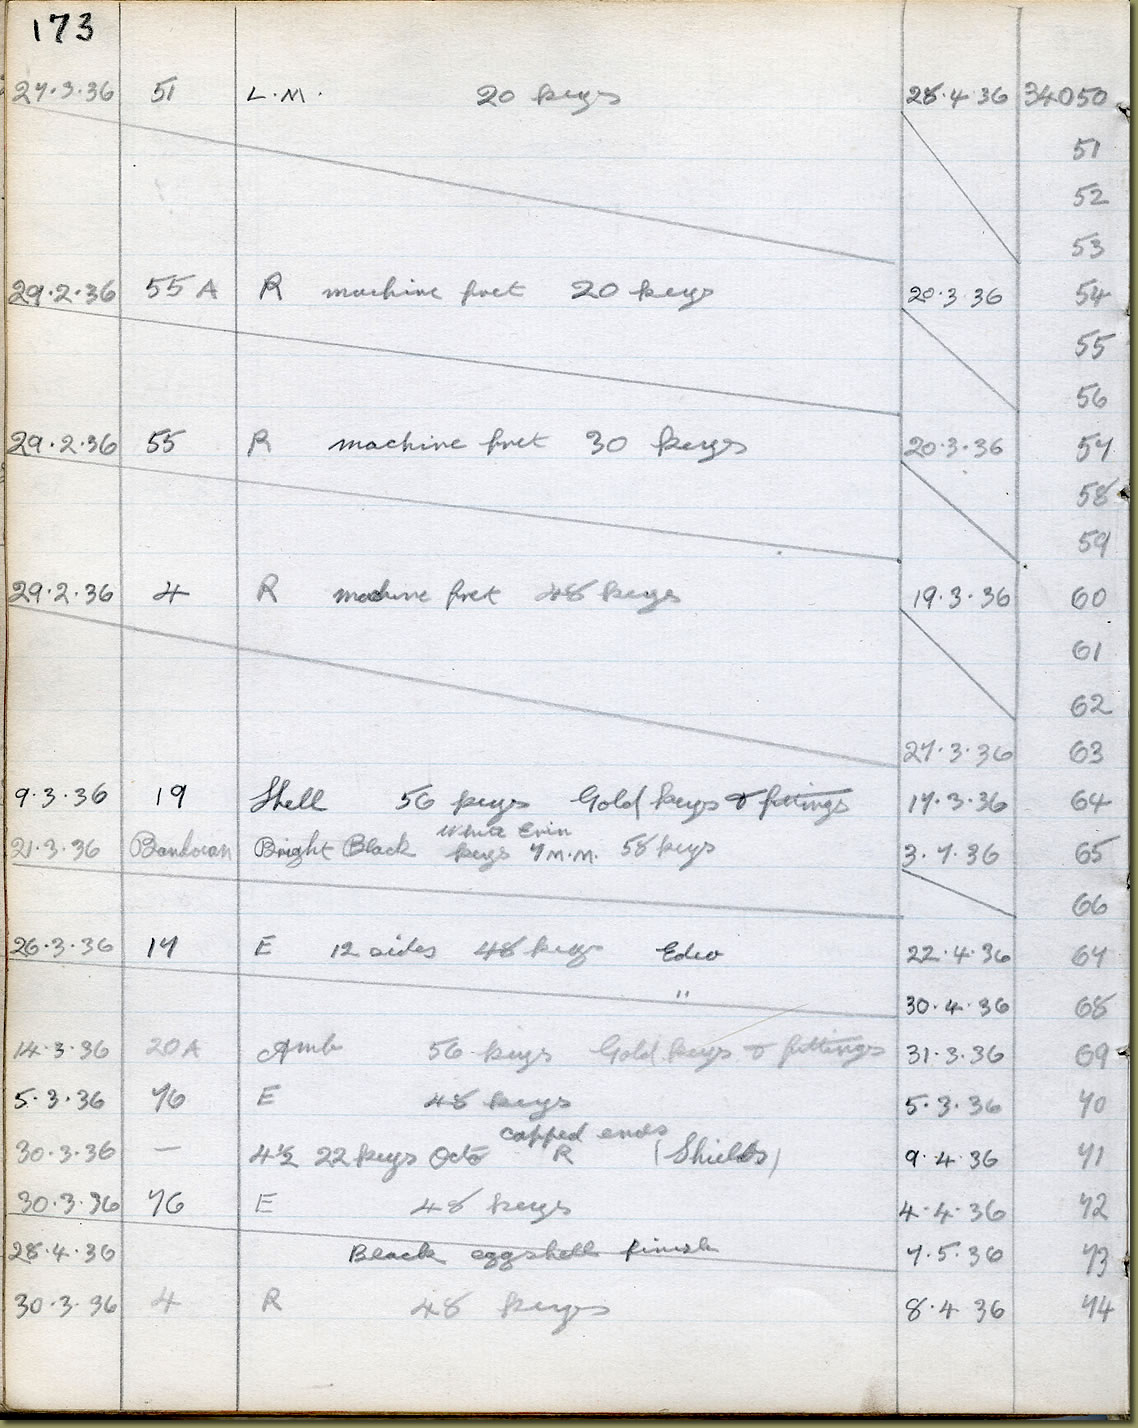 173
27.3.36 51 L.M. 20 keys 28.4.36 34050
51
52
53
29.2.36 55A R machine fret 20 keys 20.3.36 54
55
56
29.2.36 55 R machine fret 30 keys 20.3.36 57
58
59
29.2.36 4 R machine fret 48 keys 19.3.36 60
61
62
27.3.36 63
9.3.36 19 Shell 56 keys Gold keys & fittings 17.3.36 64
White Erin
21.3.36 Bright Black keys 7 M.M. 58 keys 3.7.36 65
66
26.3.36 17 E 12 sides 48 keys Edeo 22.4.36 67
" 30.4.36 68
14.3.36 20A Amb 56 keys Gold keys & fittings 31.3.36 69
5.3.36 76 E 48 keys 5.3.36 70
capped ends
30.3.36 — 4½ 22 keys Octo R (Shields) 9.4.36 71
30.3.36 76 E 48 keys 4.4.36 72
28.4.36 Black eggshell finish 7.5.36 73
30.3.36 4 R 48 keys 8.4.36 74